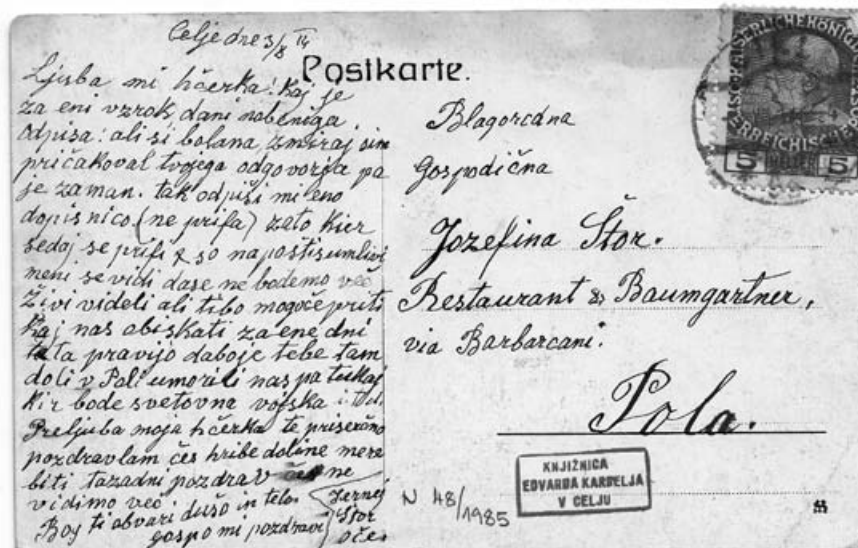 Celje dne 3/8 14
Ljuba mi hčerka! Kaj je
za eni vzrok, dani nobeniga
odpisa: ali si bolana, zmiraj sim
pričakoval tvojega odgovorja pa
je zaman. tak odpiši mi eno
dopisnico (ne prifa) zato kier
sedaj se prifi so na posti sumlivi
meni se vidi da se ne bodemo več
živi videli ali tibo mogoče priti
kaj nas obiskati za ene dni
ta ta pravijo da boje tebe tam
doli v Poli umorili nas pa tukaj
kir bode svetovna vojska
Preljuba moja hčerka te priserčno
pozdravlam čes hribe doline mere
biti ta zadni pozdrav če se ne
vidimo več.
Bog ti obvari dušo in telo.
gospo mi pozdravi
Jernej
Štor
oče
Postkarte.
Blagorodna
Gospodična
Jozefina Štor.
Restaurant Baumgartner,
via Barbarcani.
Pola.
5 HELLER 5
KNJIŽNICA
EDVARDA KARDELJA
V CELJU
N 48/1985